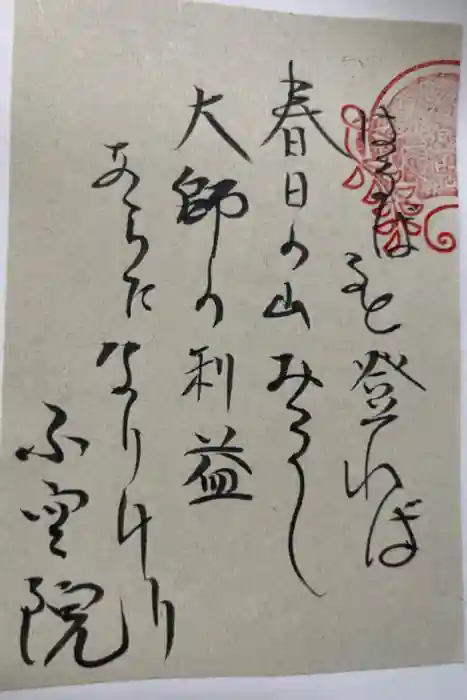 はるばると登れば
春日の山おろし
大師の利益
あらたなりけり
不空院